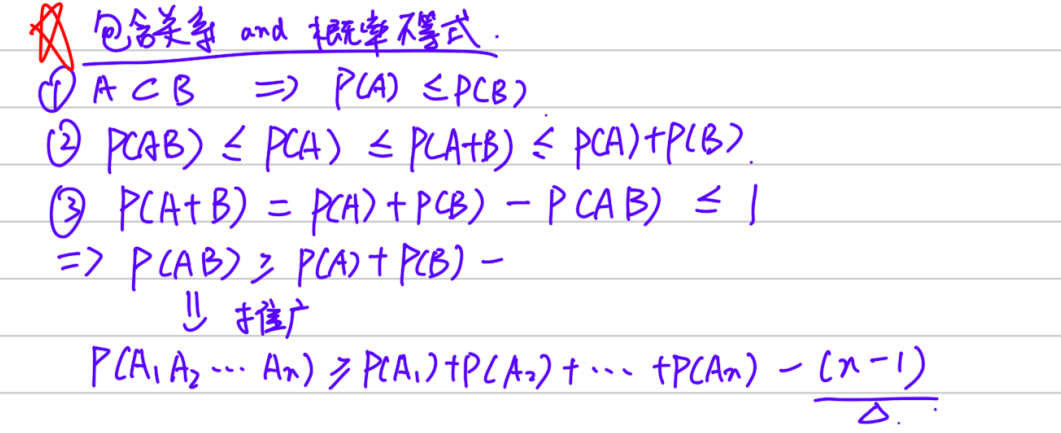 包含关系 and 概率不等式.
① A⊂B ⇒ P(A) ≤ P(B)
② P(AB) ≤ P(A) ≤ P(A+B) ≤ P(A)+P(B).
③ P(A+B) = P(A)+P(B) - P(AB) ≤ 1
⇒ P(AB) ≥ P(A)+P(B) -
⇓ 推广
P(A₁A₂⋯Aₙ) ≥ P(A₁)+P(A₂)+⋯+P(Aₙ) - (n-1)
△.